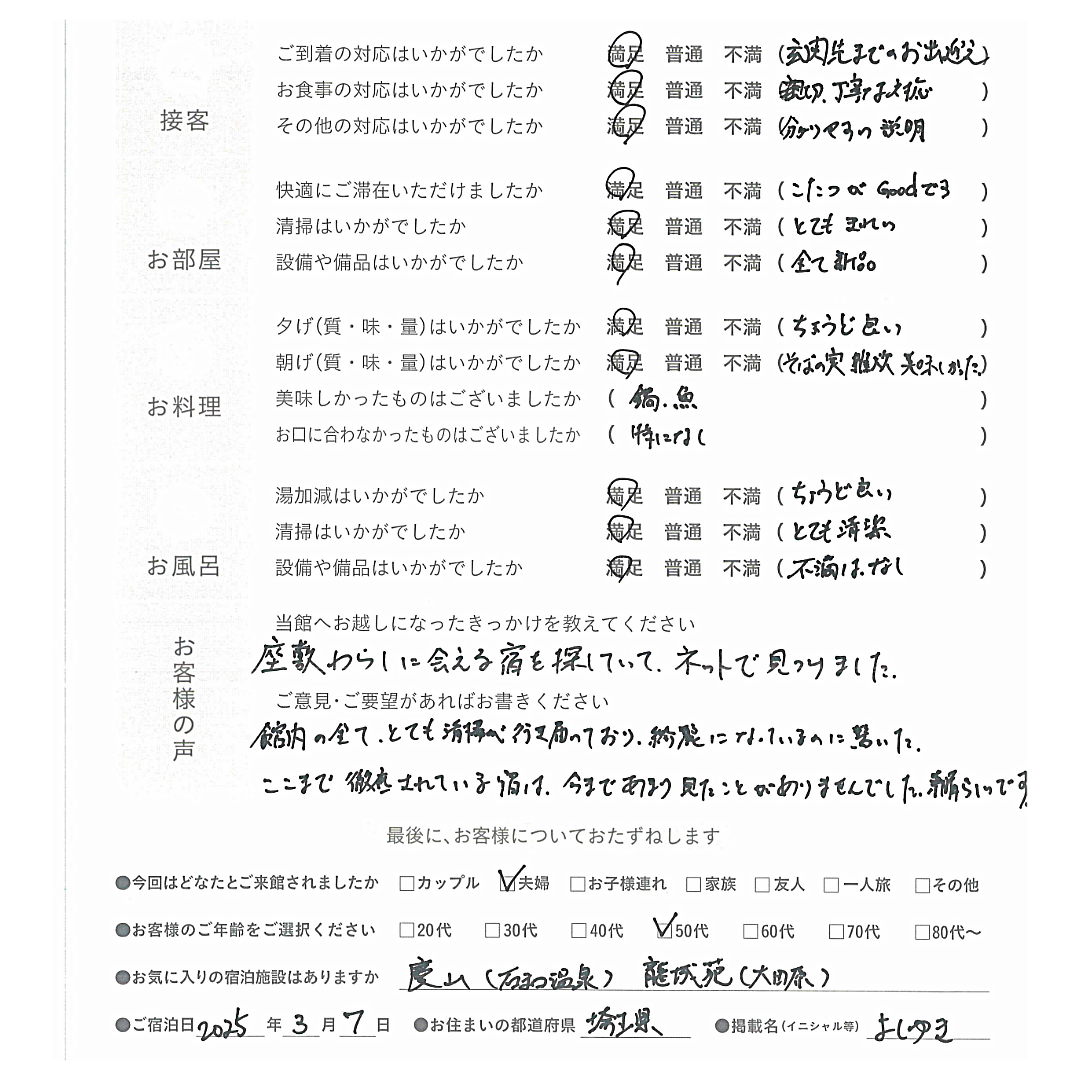 接客
ご到着の対応はいかがでしたか 満足 普通 不満 (玄関先までのお出迎え)
お食事の対応はいかがでしたか 満足 普通 不満 (親切、丁寧な対応)
その他の対応はいかがでしたか 満足 普通 不満 (分かりやすい説明)
お部屋
快適にご滞在いただけましたか 満足 普通 不満 (こたつが Goodです)
清掃はいかがでしたか 満足 普通 不満 (とてもきれい)
設備や備品はいかがでしたか 満足 普通 不満 (全て新品)
お料理
夕げ(質・味・量)はいかがでしたか 満足 普通 不満 (ちょうど良い)
朝げ(質・味・量)はいかがでしたか 満足 普通 不満 (そばの実 雑炊 美味しかった)
美味しかったものはございましたか (鍋、魚)
お口に合わなかったものはございましたか (特になし)
お風呂
湯加減はいかがでしたか 満足 普通 不満 (ちょうど良い)
清掃はいかがでしたか 満足 普通 不満 (とても清潔)
設備や備品はいかがでしたか 満足 普通 不満 (不満は、なし)
お客様の声
当館へお越しになったきっかけを教えてください
座敷わらしに会える宿を探していて、ネットで見つけました。
ご意見・ご要望があればお書きください
館内の全て、とても清掃が行き届いており、綺麗になっているのに驚いた。
ここまで徹底されている宿は、今まであまり見たことがありませんでした。素晴らしいです
最後に、お客様についておたずねします
●今回はどなたとご来館されましたか □カップル ☑夫婦 □お子様連れ □家族 □友人 □一人旅 □その他
●お客様のご年齢をご選択ください □20代 □30代 □40代 ☑50代 □60代 □70代 □80代〜
●お気に入りの宿泊施設はありますか 慶山(石和温泉) 龍城苑(大田原)
●ご宿泊日 2025 年 3 月 7 日 ●お住まいの都道府県 埼玉県 ●掲載名(イニシャル等) よしゆき